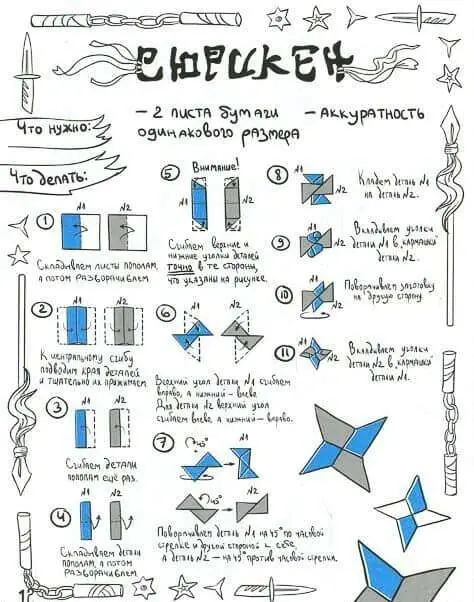 СЮРИКЕН
Что нужно:
– 2 листа бумаги
одинакового размера
– аккуратность
Что делать:
1
N1 N2
Складываем листы пополам,
а потом разворачиваем.
2
N1 N2
К центральному сгибу
подводим края деталей
и тщательно их прижимаем.
3
N1 N2
Сгибаем детали
пополам ещё раз.
4
N1 N2
Складываем детали
пополам, а потом
разворачиваем.
5
Внимание!
N1 N2
Сгибаем верхние и
нижние уголки деталей
точно в те стороны,
что указаны на рисунке.
6
N1 N2
Верхний угол детали N1 сгибаем
вправо, а нижний – влево.
Для детали N2 верхний угол
сгибаем влево, а нижний – вправо.
7
45° N1
45° N2
Поворачиваем деталь N1 на 45° по часовой
стрелке и другой стороной к себе,
а деталь N2 – на 45° против часовой стрелки.
8
N1
N2
Кладем деталь N1
на деталь N2.
9
N1
N2
Вкладываем уголки
детали N1 в кармашки
детали N2.
10
N1
N2
Поворачиваем заготовку
на другую сторону.
11
Вкладываем уголки
детали N2 в кармашки
детали N1.